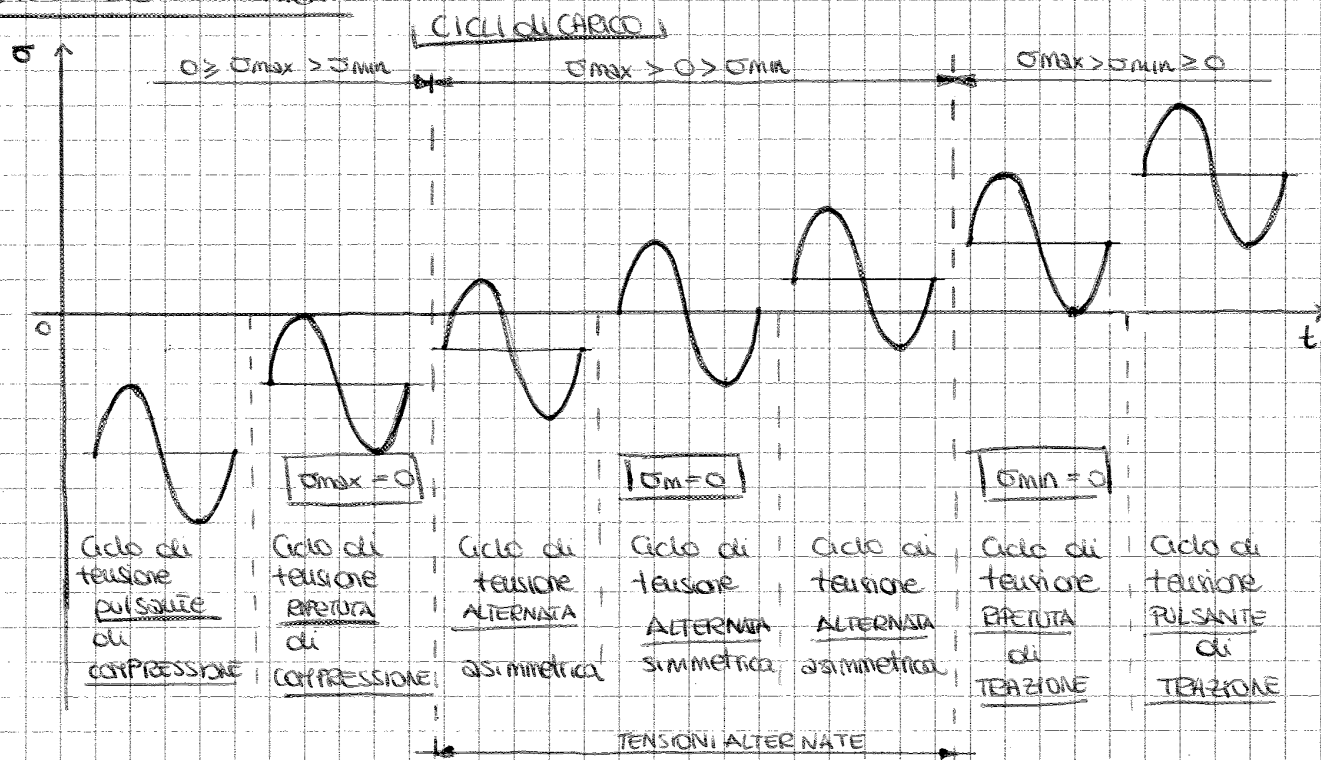 CICLI di CARICO
σ
0 ≥ σmax > σmin
σmax > 0 > σmin
σmax > σmin ≥ 0
0
t
σmax = 0
σm = 0
σmin = 0
Ciclo di
tensione
pulsante
di
COMPRESSIONE
Ciclo di
tensione
RIPETUTA
di
COMPRESSIONE
Ciclo di
tensione
ALTERNATA
asimmetrica
Ciclo di
tensione
ALTERNATA
simmetrica
Ciclo di
tensione
ALTERNATA
asimmetrica
Ciclo di
tensione
RIPETUTA
di
TRAZIONE
Ciclo di
tensione
PULSANTE
di
TRAZIONE
TENSIONI ALTERNATE